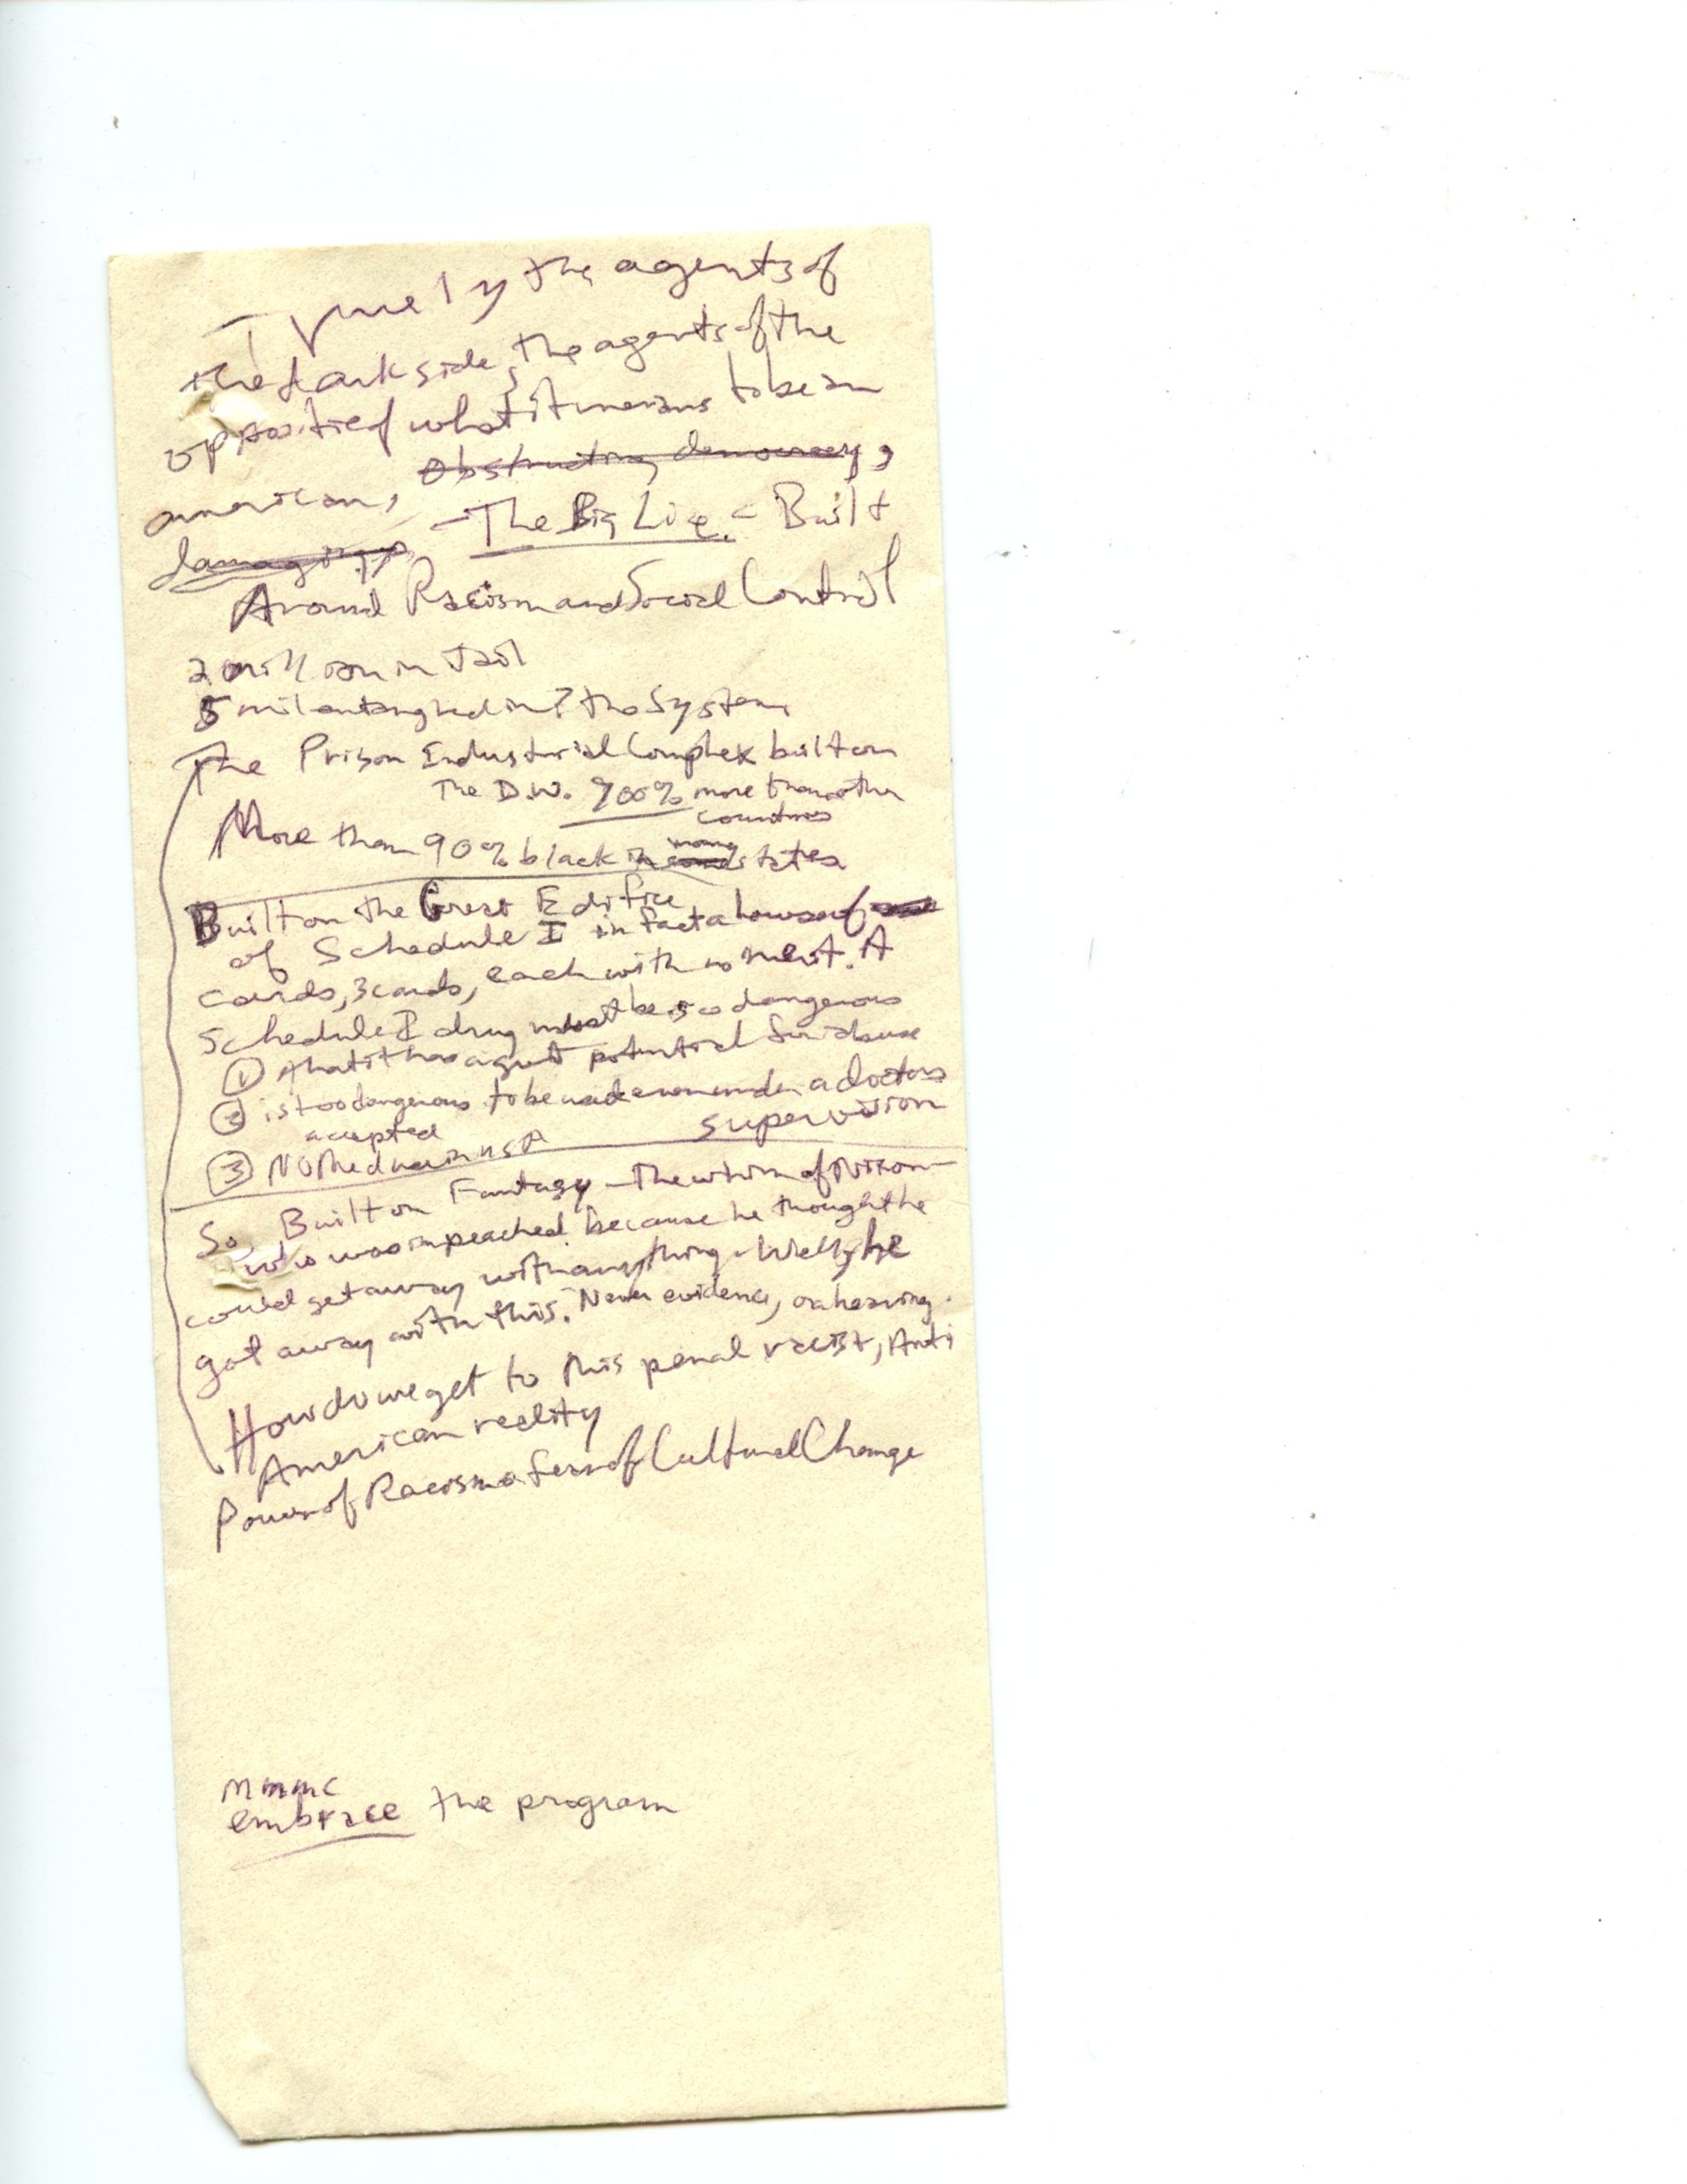 Truely the agents of
the dark side, the agents of the
opposite of what it means to be an
american, obstructing democracy,
damaging - The Big Lie. - Built
Around Racism and Social Control
2 million in Jail
5 mil entangled in? the System
The Prison Industrial Complex built on
The D.W. 700% more than other
countries
More than 90% black in many states
Built on the Great Edifice
of Schedule I in fact a house of
cards, 3 cards, each with no merit. A
Schedule I drug must be so dangerous
① that it has a great potential for abuse
② is too dangerous to be used even under a doctors
supervision
accepted
③ No Med use in USA
So, Built on Fantasy - The whim of Nixon -
who was impeached because he thought he
could get away with anything - Well, he
got away with this. Never evidence, or hearing.
How do we get to this penal racist, Anti
American reality
Power of Racism a fear of Cultural Change
MMMC
embrace the program